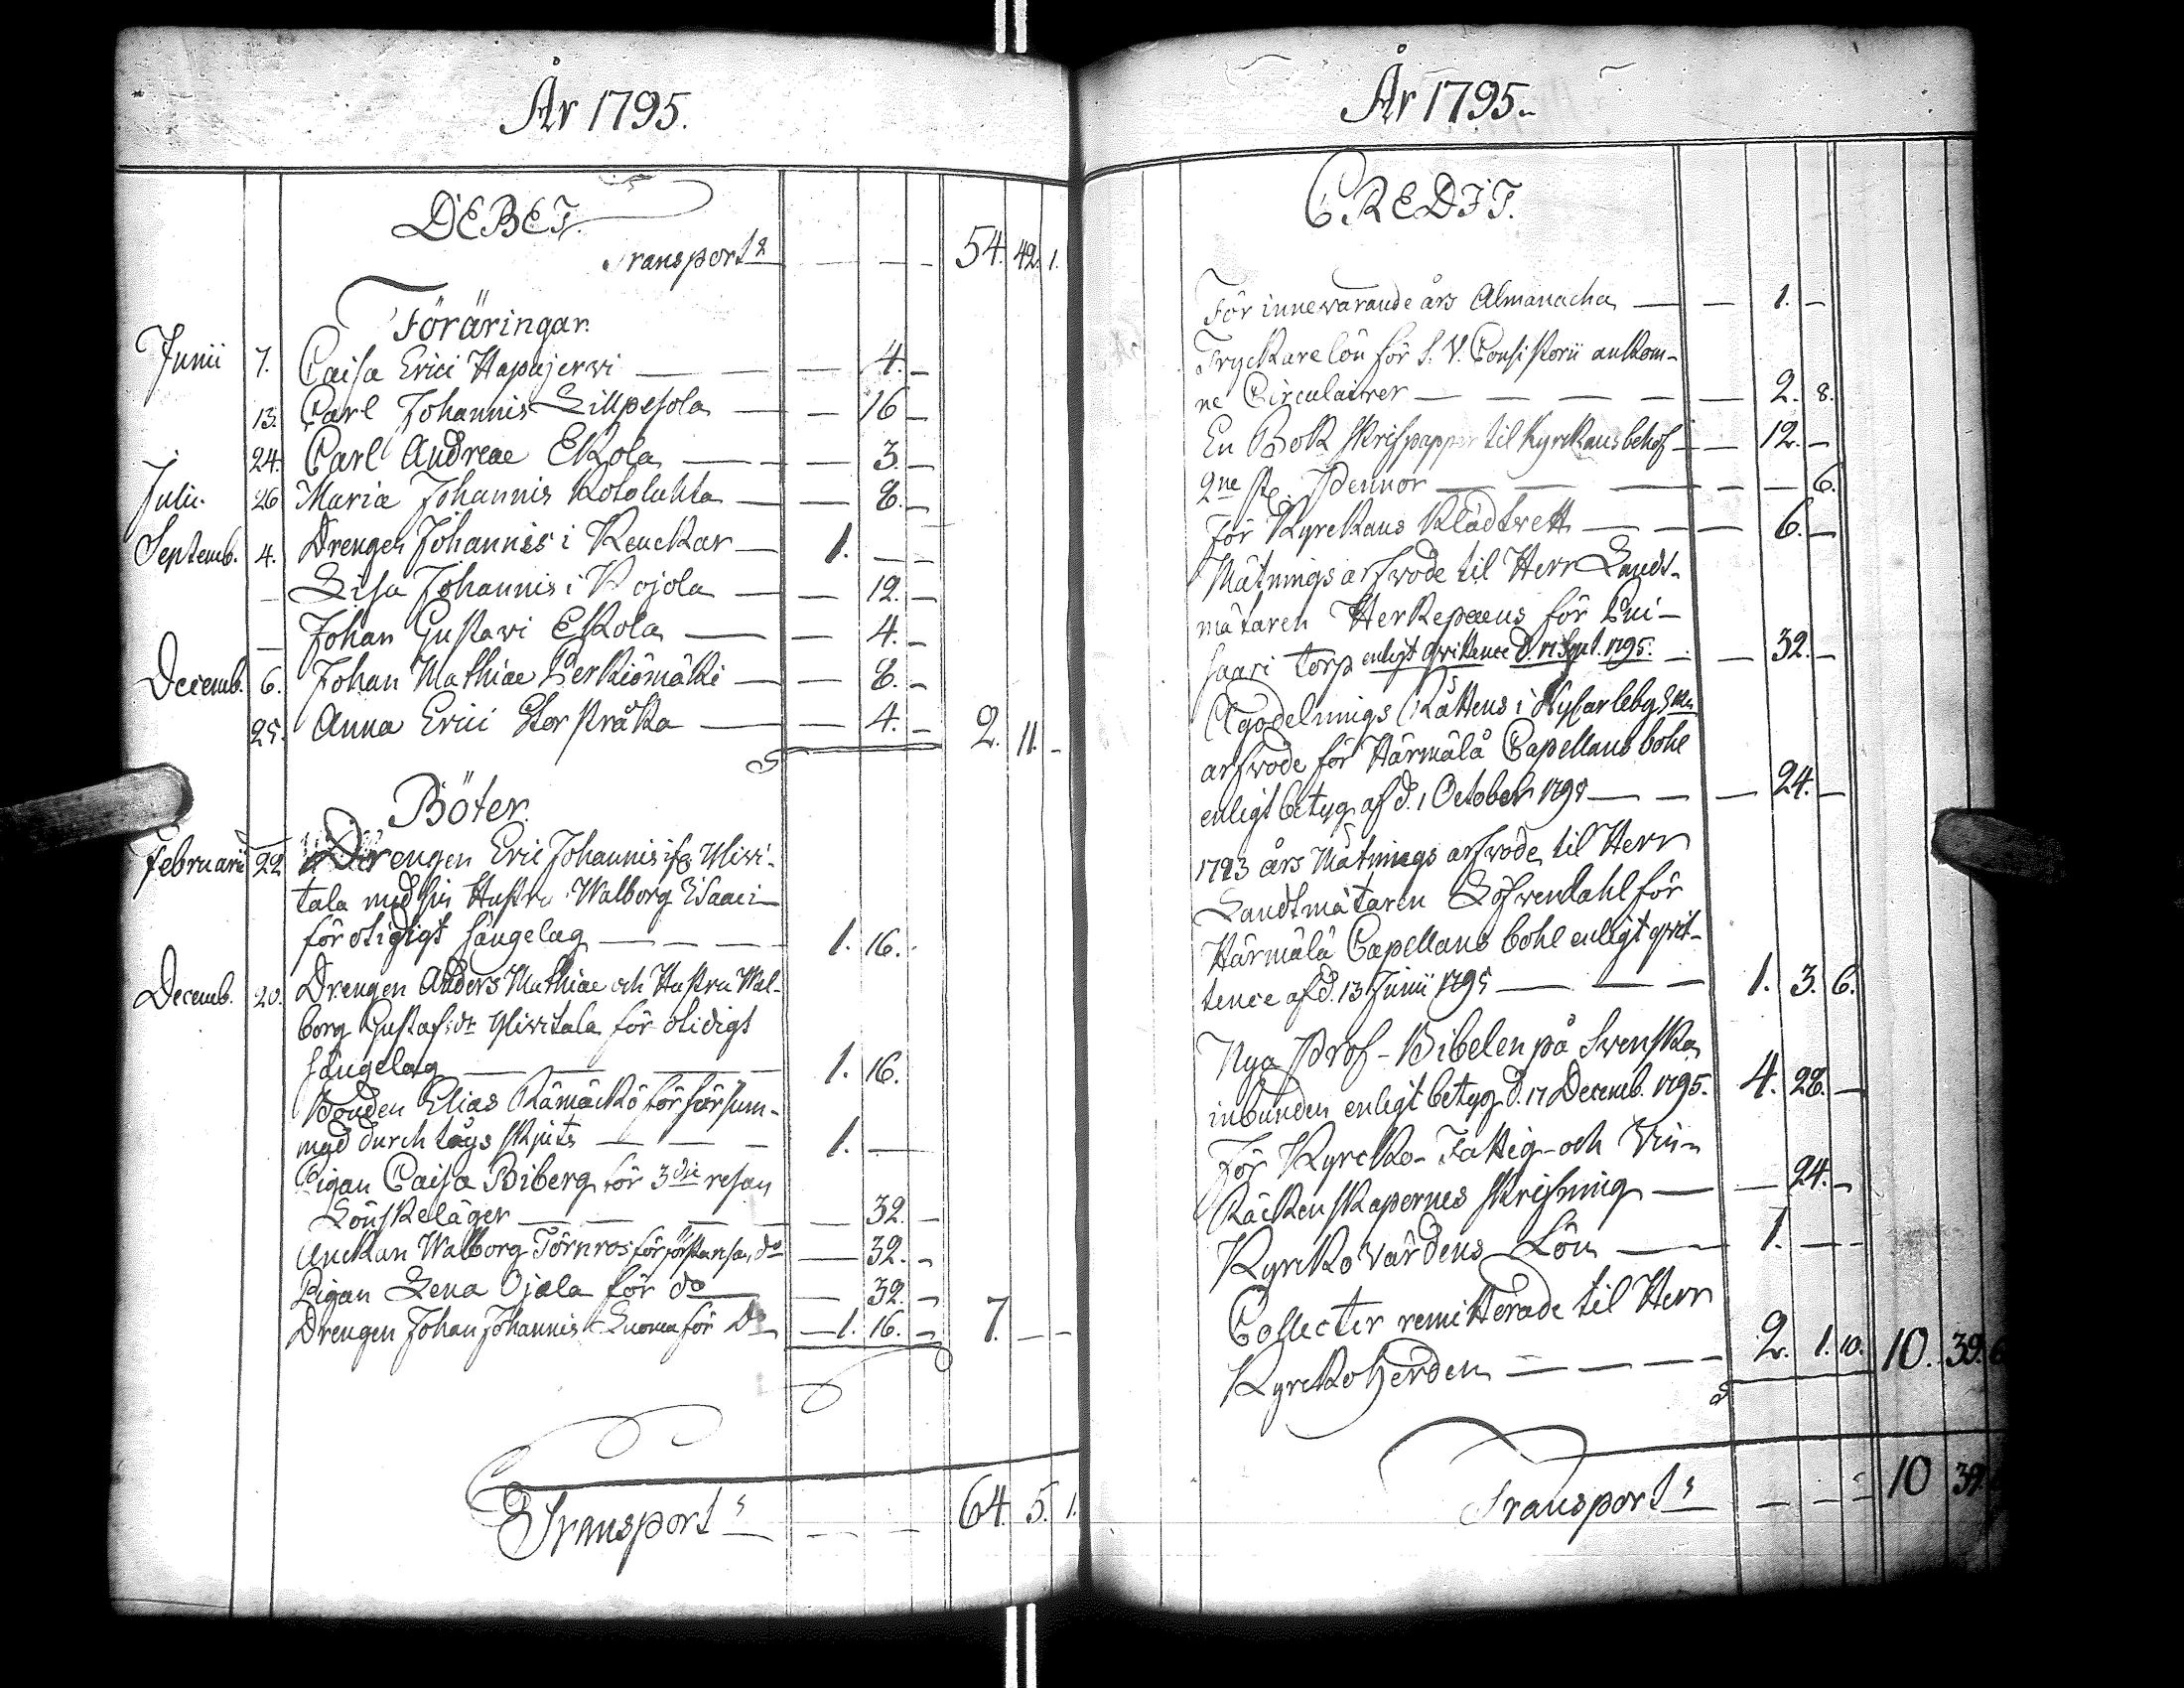 År 1795.
DEBET.
Transport 54. 42. 1.
Föräringar.
Junii 7. Caisa Erici Hapajerwi — 4. —
13. Carl Johannis Sillpesola — 16 —
24. Carl Andreae Ekola — 3. —
Julii. 26 Maria Johannis Kotoluhta — 8. —
Septemb. 4. Drengen Johannes i Keuckar — 1. — —
— Lisa Johannis i Pojola — 12. —
— Johan Gustavi Ekola — 4. —
Decemb. 6. Johan Mathiae Perkiömäki — 8. —
25. Anna Erici Stor Stråka — 4. — 2. 11. —
Böter.
Februarii 22 Drengen Eric Johannis Yliwi-
tala med sin Hustru Walborg Isaaci
för otidigt sängelag — 1. 16.
Decemb. 20. Drengen Anders Mathiae och Hustru Wal-
borg Gustafs dr Yliwitala för otidigt
sängelag — 1. 16.
Bonden Elias Rämäckö för försum-
mad durchtågs skjuts — 1. —
Pigan Caisa Biberg för 3die resan
Lönskeläger — 32. —
Enckan Walborg Törnros för första resan do — 32. —
Pigan Lena Ojala för do — 32. —
Drengen Johan Johannis Luoma för Do — 1. 16. — 7. — —
Transport 64. 5. 1.
År 1795.
CREDIT.
För innevarande års Almanacha — 1. —
Tryckarelön för S. V. Consistorii ankom-
ne Circulairer — 2. 8.
En Bok skrifpapper til Kyrckans behof — 12. —
2ne st. Pennor — 6.
För Kyrckans Klädtvett — 6. —
Mätnings arfvode til Herr Landt-
mätaren Herkepaeus för Lui-
saari torp enligt qvittence d. 17 Sept. 1795. — 32. —
Ägodelnings Rättens i Nycarleby Skn
arfvode för Härmälä Capellans bohl
enligt betyg af d. 1 October 1795 — 24. —
1793 års Mätnings arfvode til Herr
Landtmätaren Löfvendahl för
Härmälä Capellans bohl enligt qvit-
tence af d. 13 Junii 1795 — 1. 3. 6.
Nya Prof-Bibelen på Svenska
inbunden enligt betyg d. 17 Decemb. 1795. 4. 28. —
För Kyrcko- Fattig- och Vin-
Räckenskapernes skrifning — 24. —
Kyrcko Värdens Lön — 1. — —
Collecter remitterade til Herr
Kyrckoherden — 2. 1. 10. 10. 39. 6
Transport 10 39.